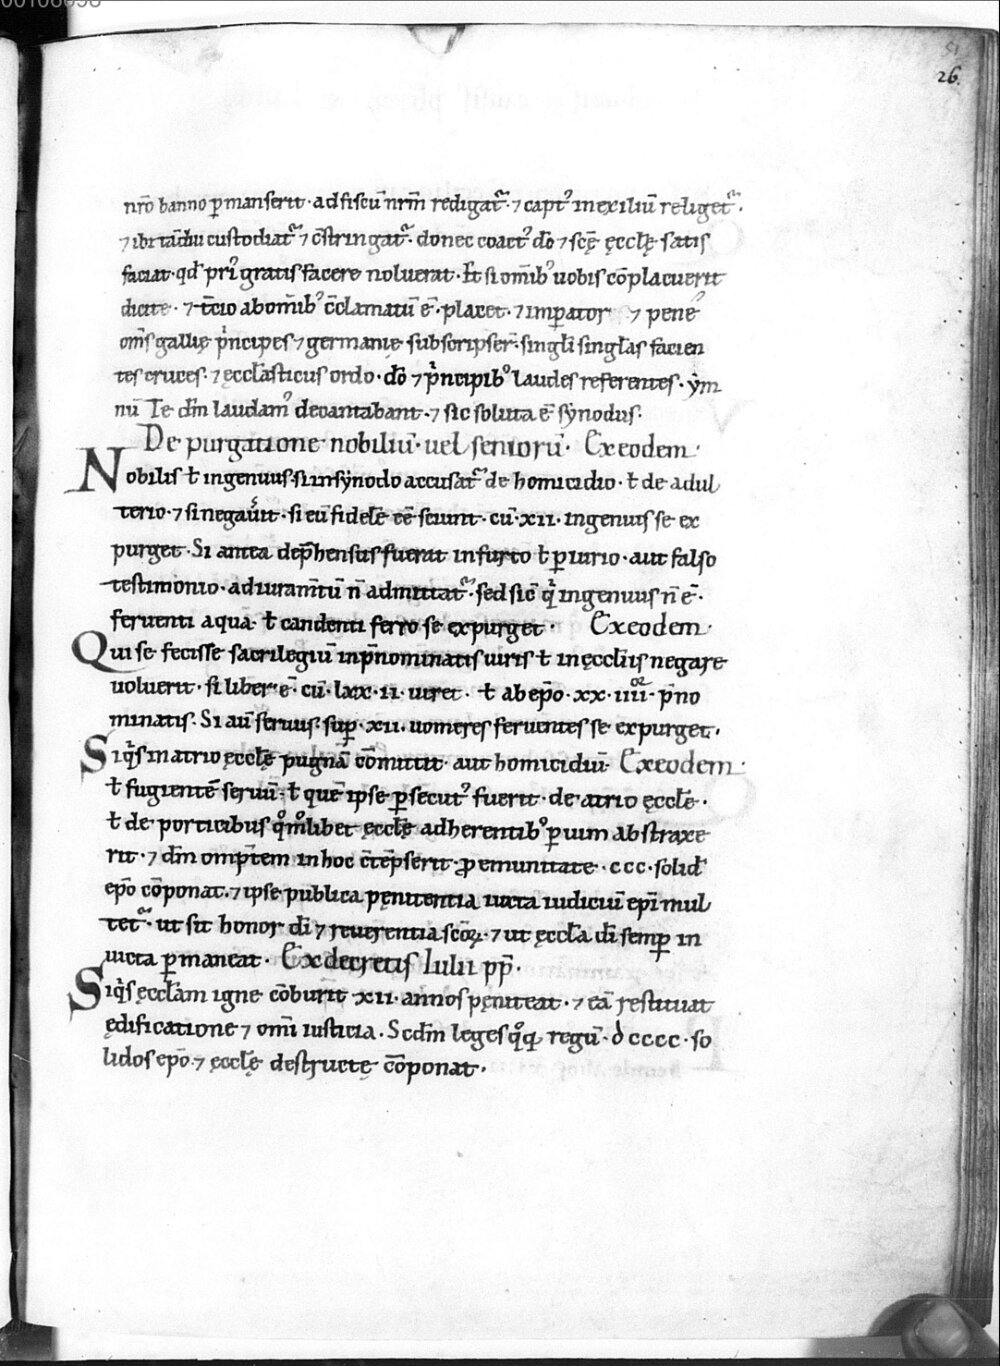 00106098
51
26.
nr̄o banno ꝑmanserit · ad fiscū nr̄m redigat᷑ · ⁊ capt᷒ in exiliū religet᷑ ·
⁊ ibi tādiu custodiat᷑ ⁊ c̄stringat᷑ · donec coact᷒ dō ⁊ scę̄ ęcclę̄ satis
faciat · qđ pri᷒ gratis facere noluerat · Et si om̄ib᷒ uobis cōplacuerit
dicite · ⁊ t̄cio ab om̄ib᷒ c̄clamatū ē · placet · ⁊ imꝑator ⁊ pene
om̄s gallię pⁱncipes ⁊ germanię subscripser̄ · singl̄i singl̄as facien
tes cruces · ⁊ ęccl̄asticus ordo · dō ⁊ pⁱncipib᷒ laudes referentes · ẏm
nū Te dm̄ laudam᷒ decantabant · ⁊ sic soluta ē sẏnodus ·
De purgatione nobiliū · uel seniorū · Ex eodem ·
Nobilis ł ingenuus · si in sẏnodo accusat᷑ de homicidio · ł de adul
terio · ⁊ si negau̾it · si eū fidelē eē sciunt · cū · xii · ingenuis se ex
purget · Si antea dep̄hensus fuerat in furto ł ꝑiurio · aut falso
testimonio · ad iuram̄tū n̄ admittat᷑ · sed sic̄ qⁱ ingenuus n̄ ē ·
feruenti aqua · ł candenti ferro se expurget · Ex eodem ·
Qui se fecisse sacrilegiū in p̄nominatis uiris ł in ęccl̄iis negare
uoluerit · si liber ē · cū · lxx · ii · iuret · ł ab ep̄o · xx · iiii · p̄no
minatis · Si aū seruus · suꝑ · xii · uomeres feruentes se expurget ·
Siqⁱs in atrio ęcclę̄ pugnā cōmittit · aut homicidiū Ex eodem ·
ł fugientē seruū · ł quē ipse ꝑsecut᷒ fuerit · de atrio ęcclę̄ ·
ł de porticibus qͦmͦlibet ęcclę̄ adherentib᷒ ꝑ uim abstraxe
rit · ⁊ dm̄ omp̄tem in hoc c̄tēpserit · ꝓ emunitate · ccc · solid̄
ep̄o cōponat · ⁊ ipse publica pęnitentia iuxta iudiciū ep̄i mul
tet᷑ · ut sit honor dī ⁊ reuerentia scōꝝ · ⁊ ut ęccl̄a dī semꝑ in
uicta ꝑmaneat · Ex decretis Iulii pp̄ ·
Siqⁱs ęccl̄am igne cōburit xii · annos pęniteat · ⁊ eā restituat
ędificatione ⁊ om̄i iusticia · Scdm̄ leges qͦqꝫ regū · dcccc · so
lidos ep̄o ⁊ ęcclę̄ destructę cōponat ·